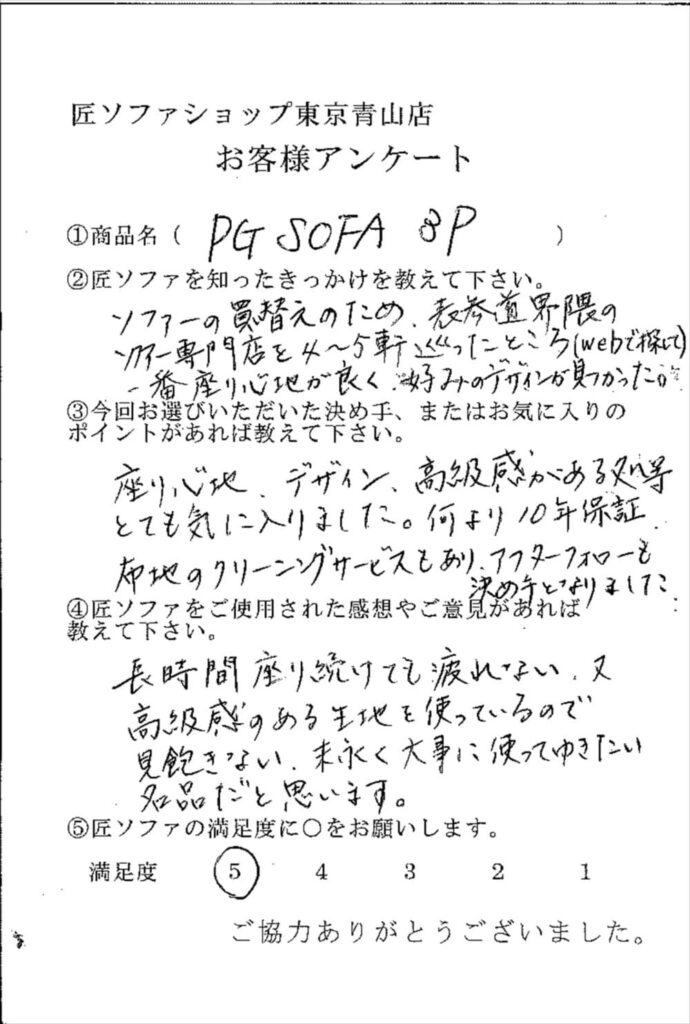 匠ソファショップ東京青山店
お客様アンケート
①商品名（ PG SOFA 3P ）
②匠ソファを知ったきっかけを教えて下さい。
ソファーの買替えのため、表参道界隈の
ソファー専門店を4～5軒巡ったところ(webで探して)
一番座り心地が良く、好みのデザインが見つかった。
③今回お選びいただいた決め手、またはお気に入りの
ポイントがあれば教えて下さい。
座り心地、デザイン、高級感がある処等
とても気に入りました。何より10年保証、
布地のクリーニングサービスもあり、アフターフォローも
決め手となりました。
④匠ソファをご使用された感想やご意見があれば
教えて下さい。
長時間座り続けても疲れない、又
高級感のある生地を使っているので
見飽きない、末永く大事に使ってゆきたい
名品だと思います。
⑤匠ソファの満足度に〇をお願いします。
満足度 5 4 3 2 1
ご協力ありがとうございました。